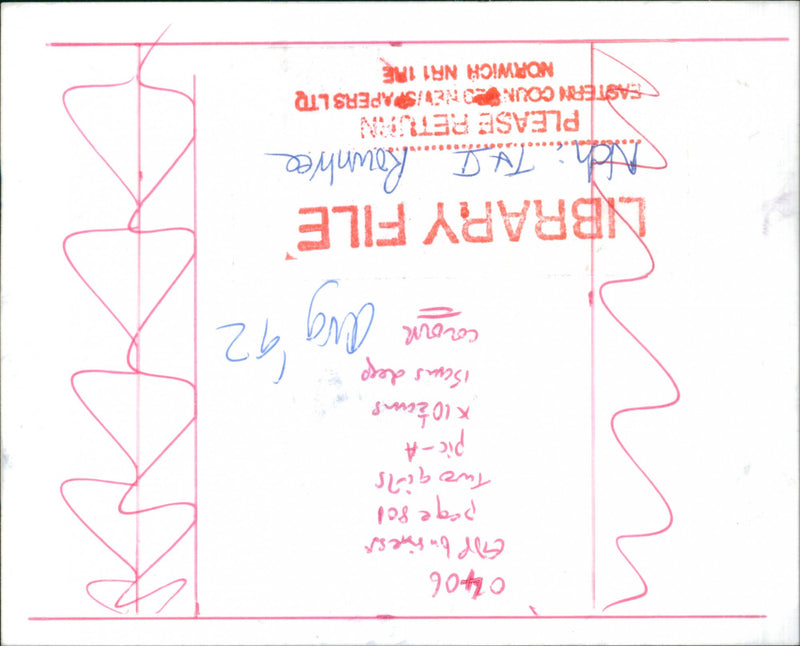 0406
EDP business
page 801
Two girls
pic-A
x 10½cms
15cms deep
COLOUR
Aug '92
LIBRARY FILE
Nch: Rowntree
PLEASE RETURN
EASTERN COUNTIES NEWSPAPERS LTD
NORWICH NR1 1RE